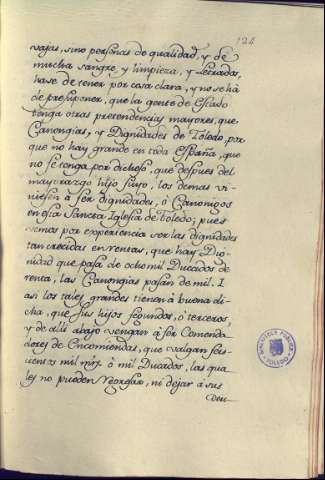 124
vajas, sino personas de qualidad, y de
mucha sangre, y limpieza, y Letrados,
hase de tener por cosa clara, y no se há
de presuponer, que la gente de Estado
tenga otras pretendencias mayores, que
Canongias, y Dignidades de Toledo, por
que no hay grande en toda España, que
no se tenga por dichoso, que despues del
mayorazgo hijo suyo, los demas vi-
niesen à ser dignidades, ò Canonigos
en esta Sancta Iglesia de Toledo; pues
vemos por experiencia ser las dignidades
tan crecidas en rentas, que hay Dig-
nidad que pasa de ocho mil Ducados de
renta, las Canongias pasan de mil. I
asi los tales grandes tienen à buena di-
cha, que sus hijos segundos, ò terceros,
y de alli abajo vengan à ser Comenda-
dores de Encomiendas, que valgan seis-
cientos mil mrs. ò mil Ducados, las qua-
les no pueden ni dejar à sus
BIBLIOTECA PUBLICA
TOLEDO